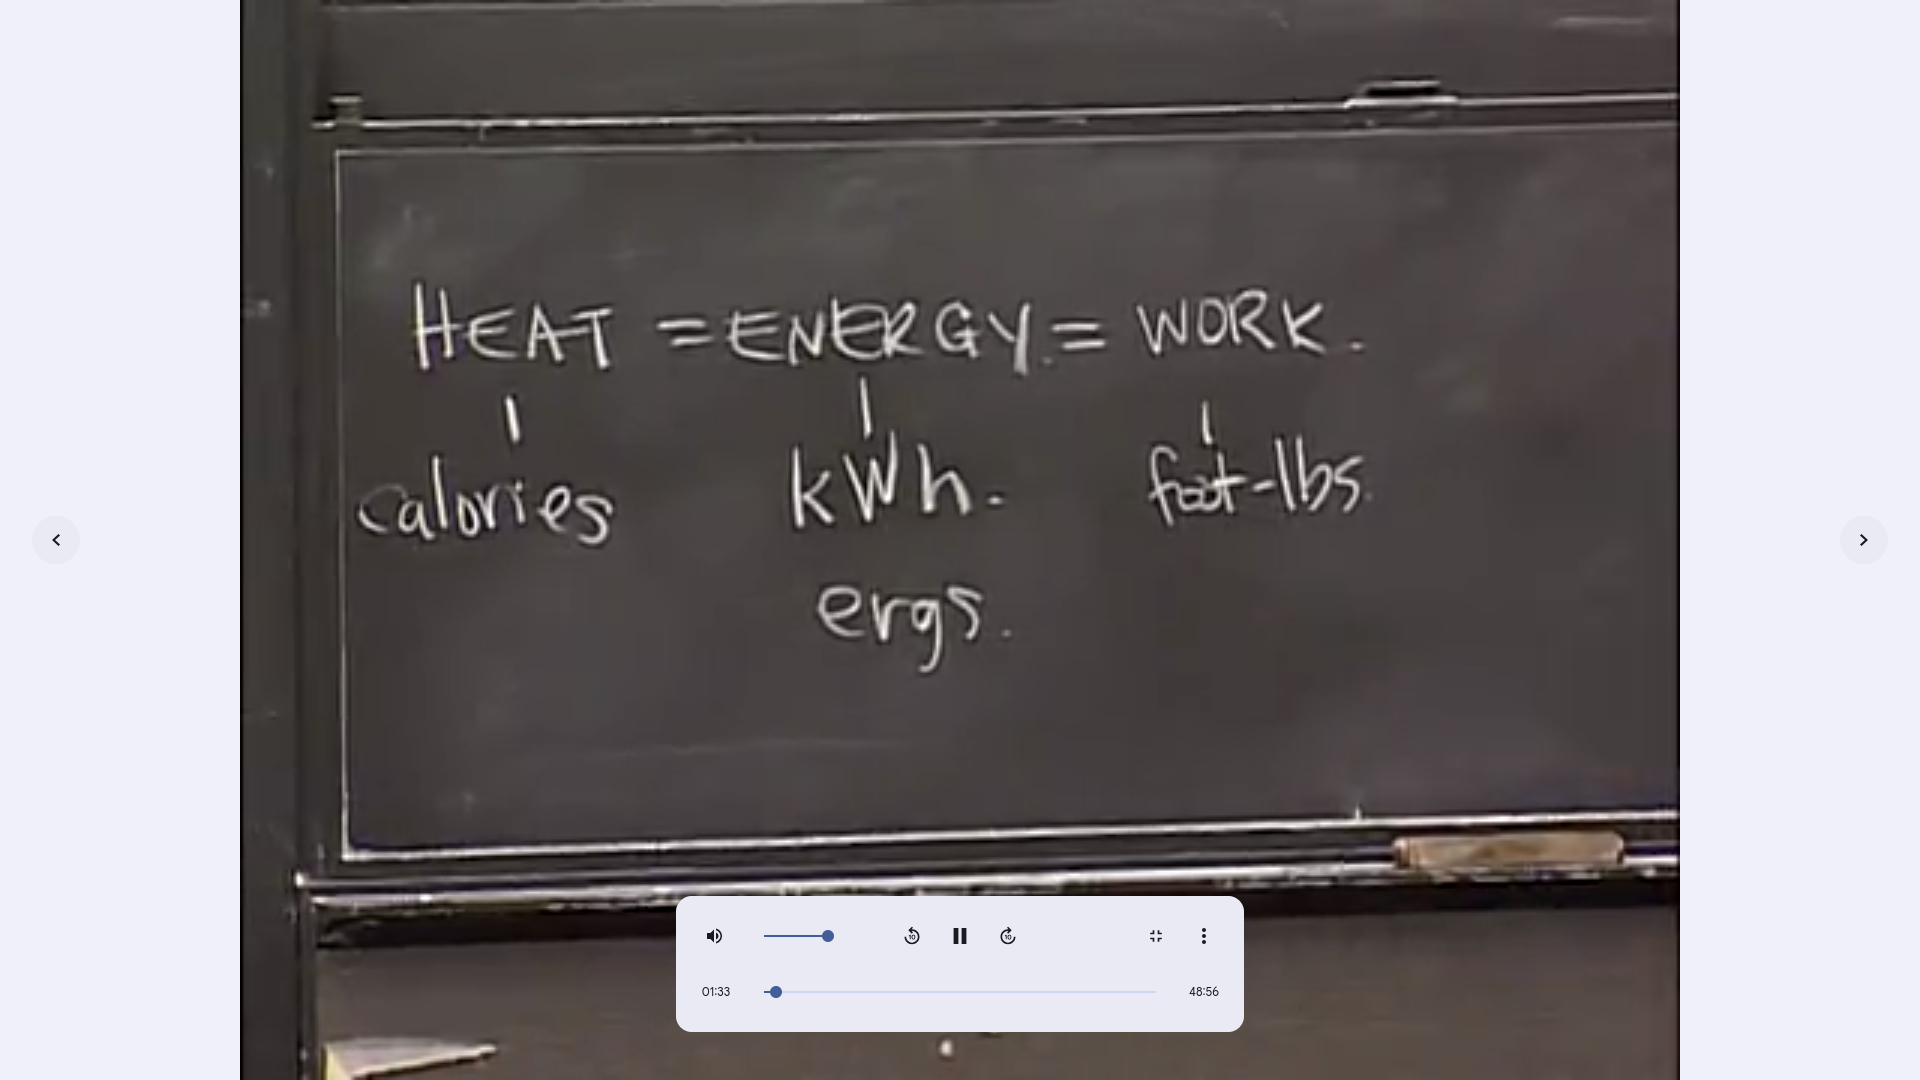 HEAT = ENERGY = WORK.
calories kWh. foot-lbs.
ergs.
10 10
01:33 48:56